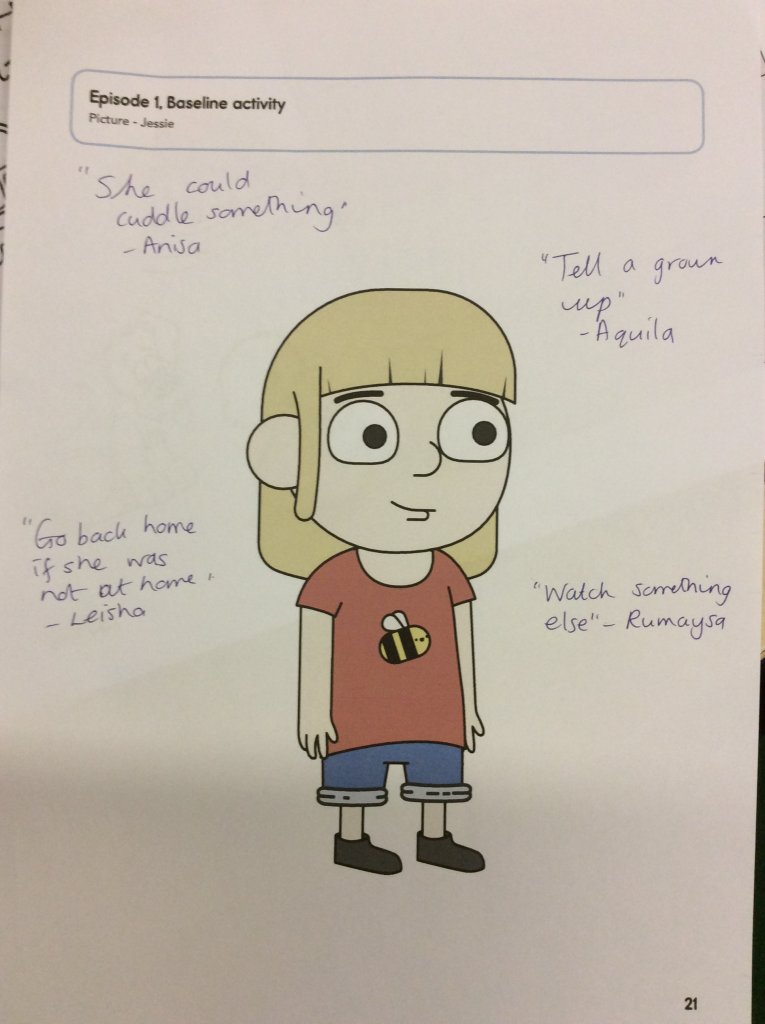 Episode 1, Baseline activity
Picture - Jessie
"She could
cuddle something"
- Anisa
"Tell a grown
up"
- Aquila
"Go back home
if she was
not at home"
- Leisha
"Watch something
else" - Rumaysa
21